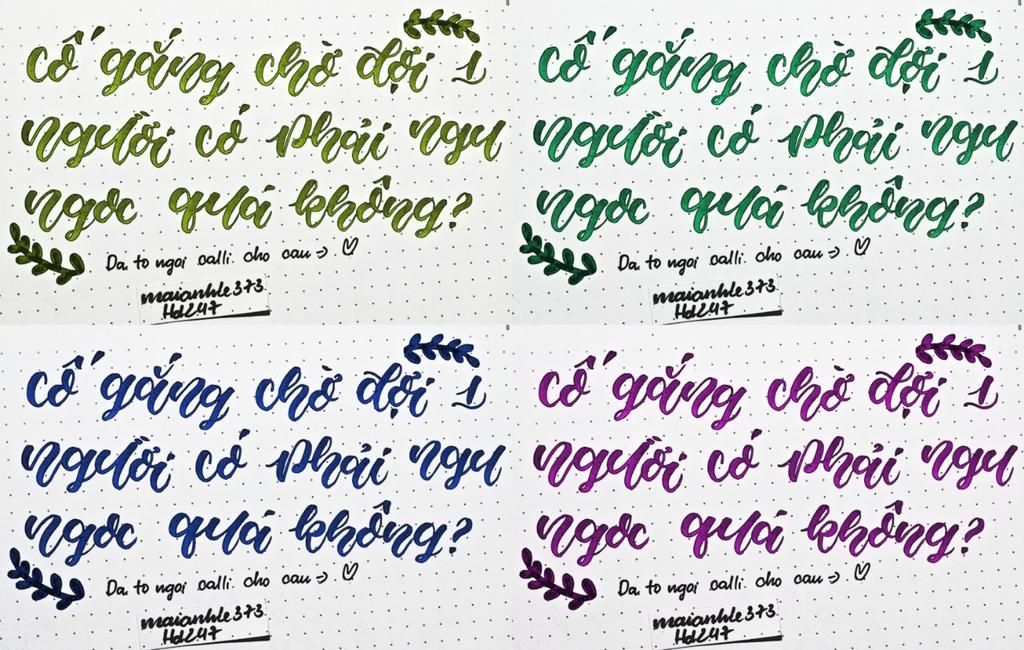 cố gắng chờ đợi 1
người có phải ngu
ngốc quá không?
Da. to ngoi calli. cho cau => ♡
maianhle373
Hd247
cố gắng chờ đợi 1
người có phải ngu
ngốc quá không?
Da. to ngoi calli. cho cau => ♡
maianhle373
Hd247
cố gắng chờ đợi 1
người có phải ngu
ngốc quá không?
Da. to ngoi calli. cho cau => ♡
maianhle373
Hd247
cố gắng chờ đợi 1
người có phải ngu
ngốc quá không?
Da. to ngoi calli. cho cau => ♡
maianhle373
Hd247